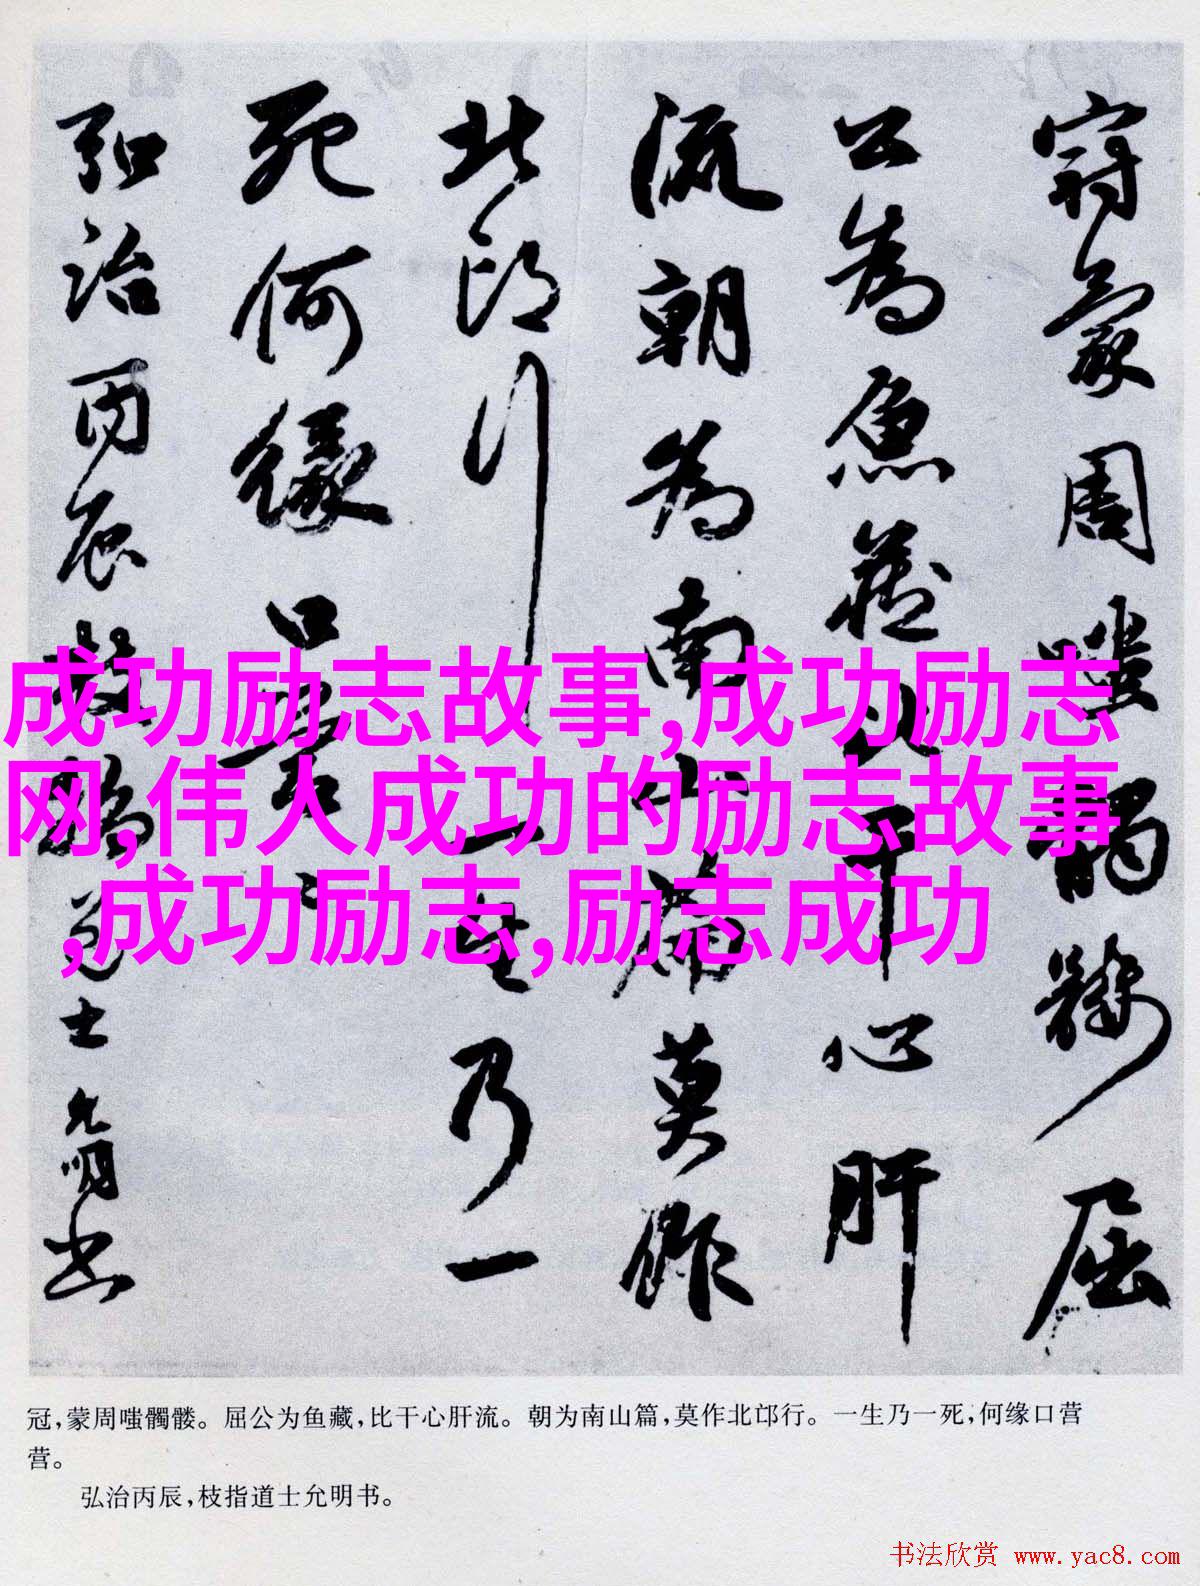 冠蒙周嗤髑髅屈
公为鱼藏比干心肝
流朝为南山篇莫作
北邙行一生乃一
死何缘口营〻
弘治丙辰枝指道士允明书
成功励志故事,成功励志
网,伟人成功的励志故事
,成功励志,励志成功
冠,蒙周嗤髑髅。屈公为鱼藏,比干心肝流。朝为南山篇,莫作北邙行。一生乃一死,何缘口营
营。
弘治丙辰,枝指道士允明书。
书法欣赏 www.yac8.com